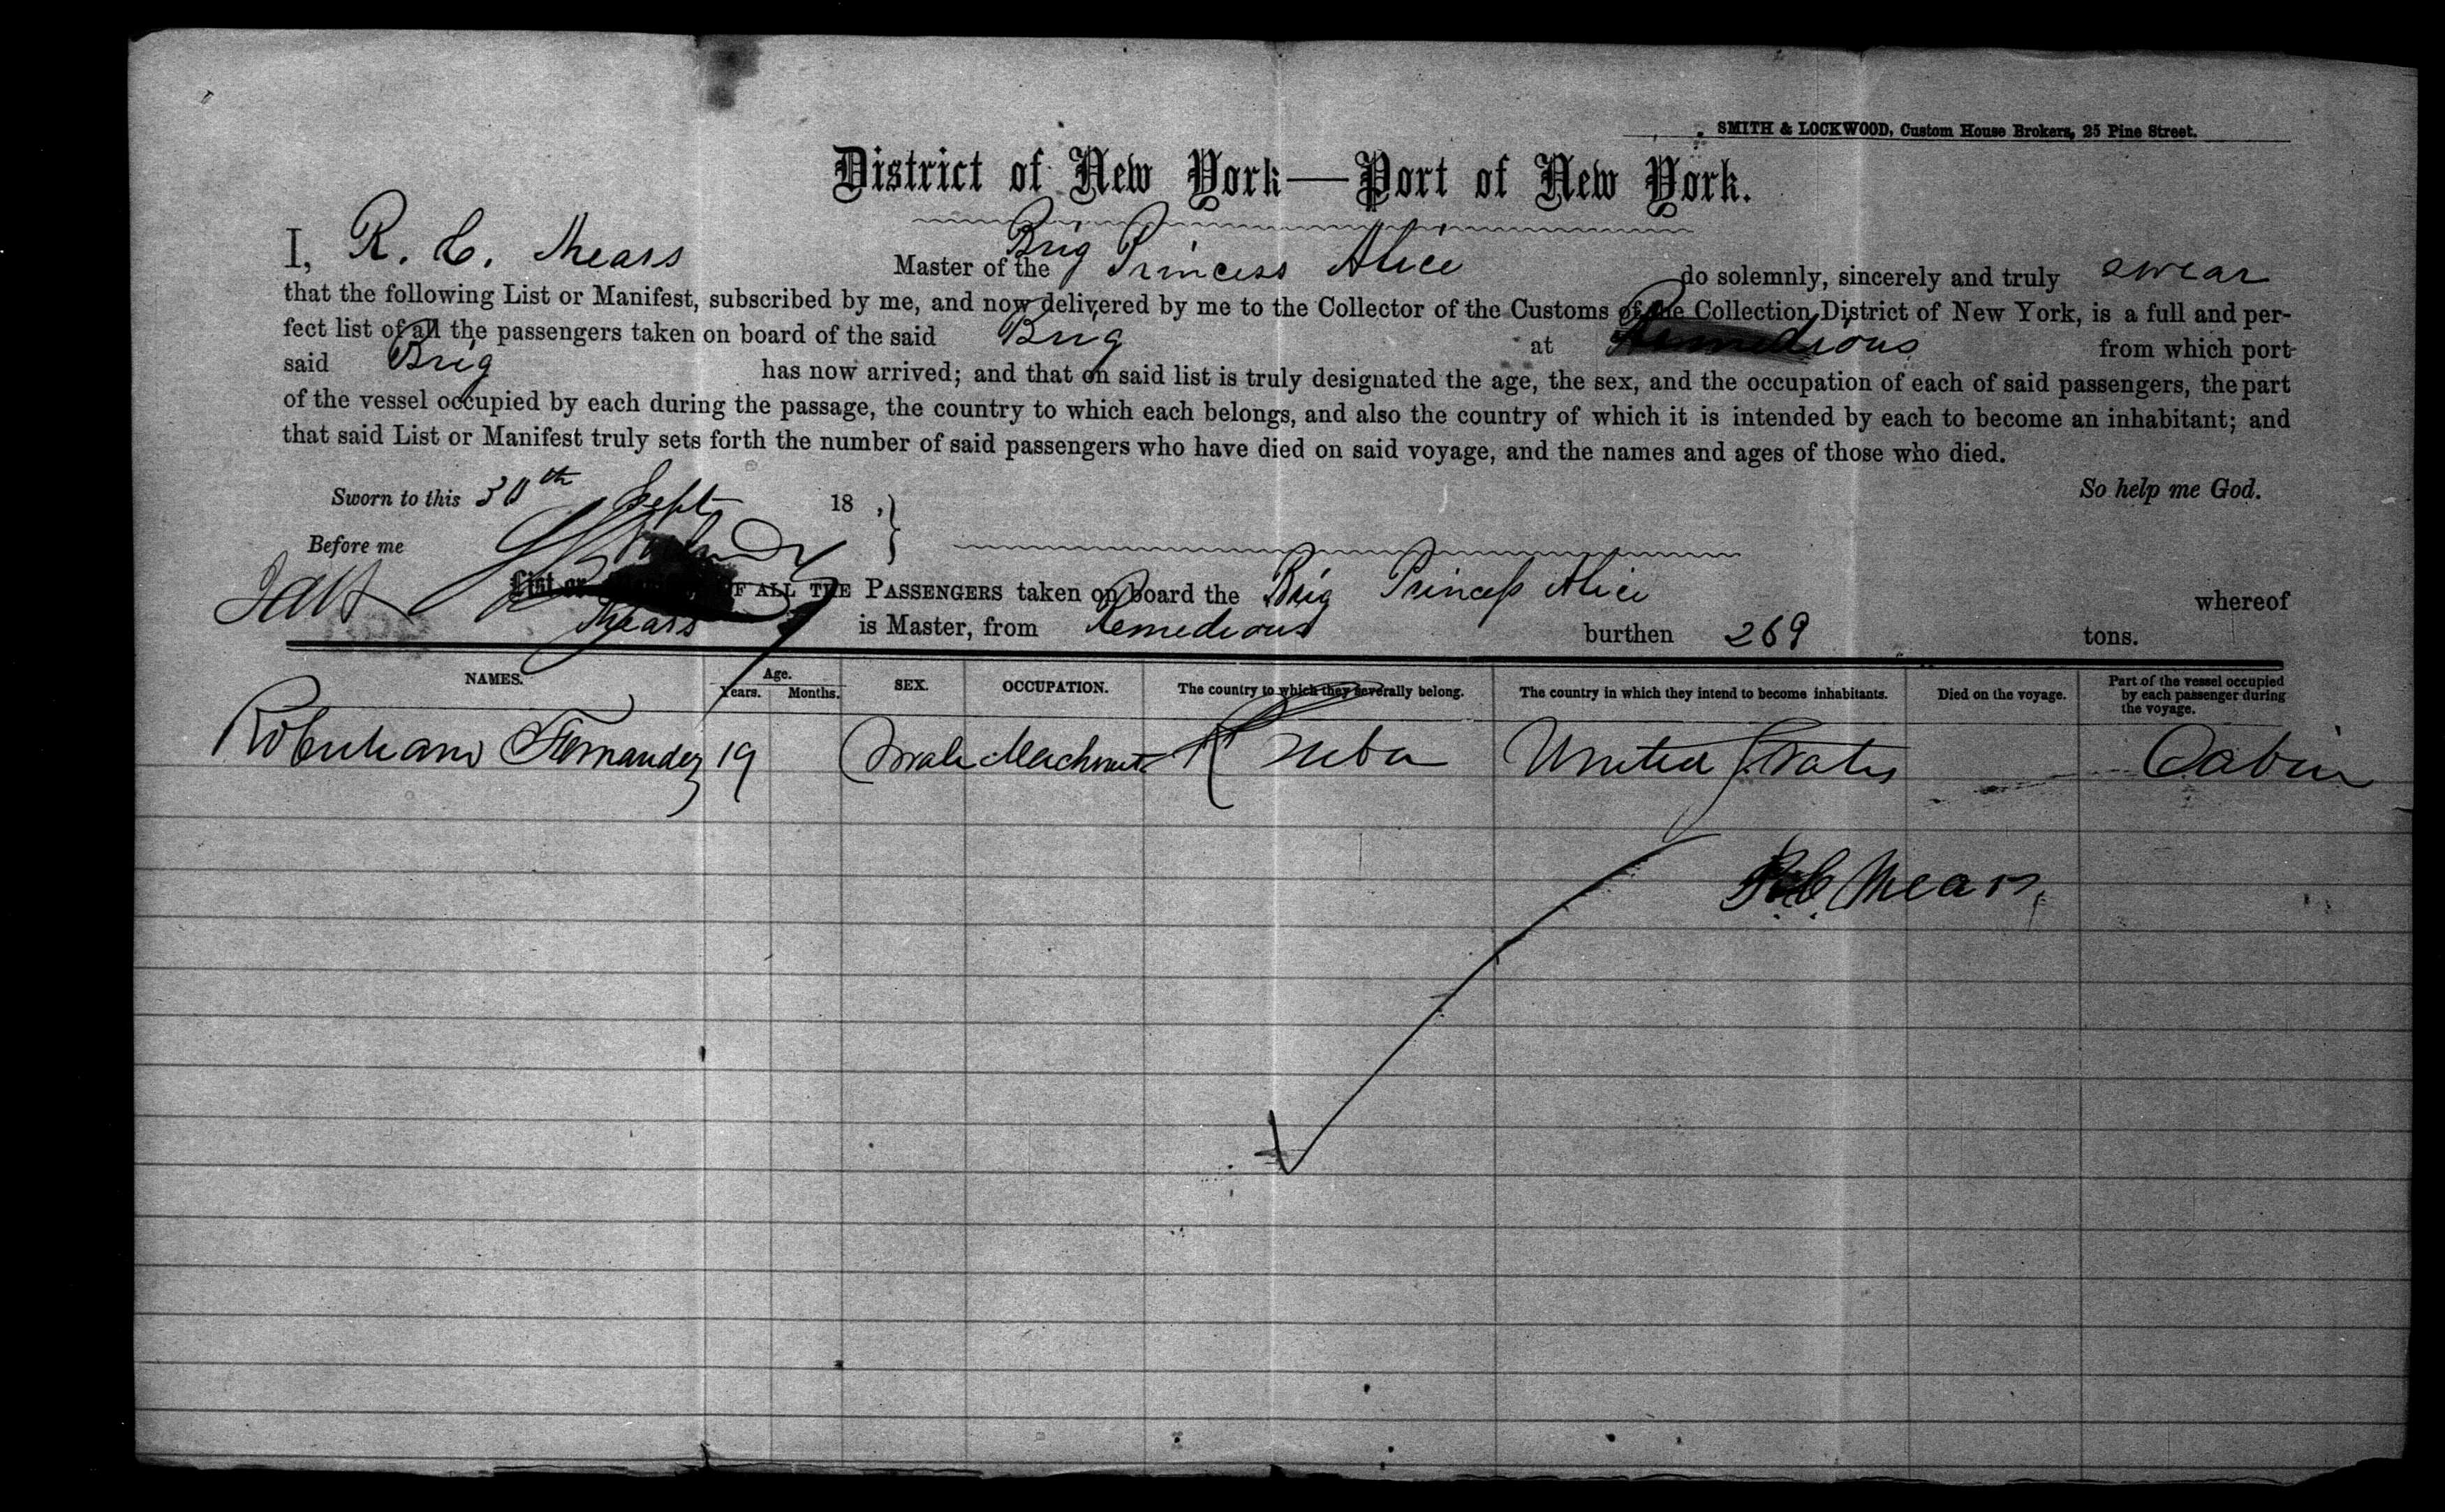 SMITH & LOCKWOOD, Custom House Brokers, 25 Pine Street.
District of New York—Port of New York.
I, R. C. Mears Master of the Brig Princess Alice do solemnly, sincerely and truly swear
that the following List or Manifest, subscribed by me, and now delivered by me to the Collector of the Customs of the Collection District of New York, is a full and per-
fect list of all the passengers taken on board of the said Brig at Remedious from which port
said Brig has now arrived; and that on said list is truly designated the age, the sex, and the occupation of each of said passengers, the part
of the vessel occupied by each during the passage, the country to which each belongs, and also the country of which it is intended by each to become an inhabitant; and
that said List or Manifest truly sets forth the number of said passengers who have died on said voyage, and the names and ages of those who died.
So help me God.
Sworn to this 30th Sept 18 ,
Before me
List or OF ALL THE PASSENGERS taken on board the Brig Princess Alice whereof
Mears is Master, from Remedious burthen 269 tons.
NAMES. Age. Years. Months. SEX. OCCUPATION. The country to which they severally belong. The country in which they intend to become inhabitants. Died on the voyage. Part of the vessel occupied by each passenger during the voyage.
Fernandez 19 Male Cuba United States Cabin
R.C. Mears